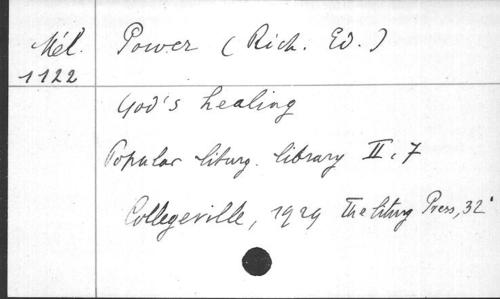 Mél. Power (Rich. Ed.)
1122
God's healing
Popular liturg. library II, 7
Collegeville, 1929 The liturg Press, 32°